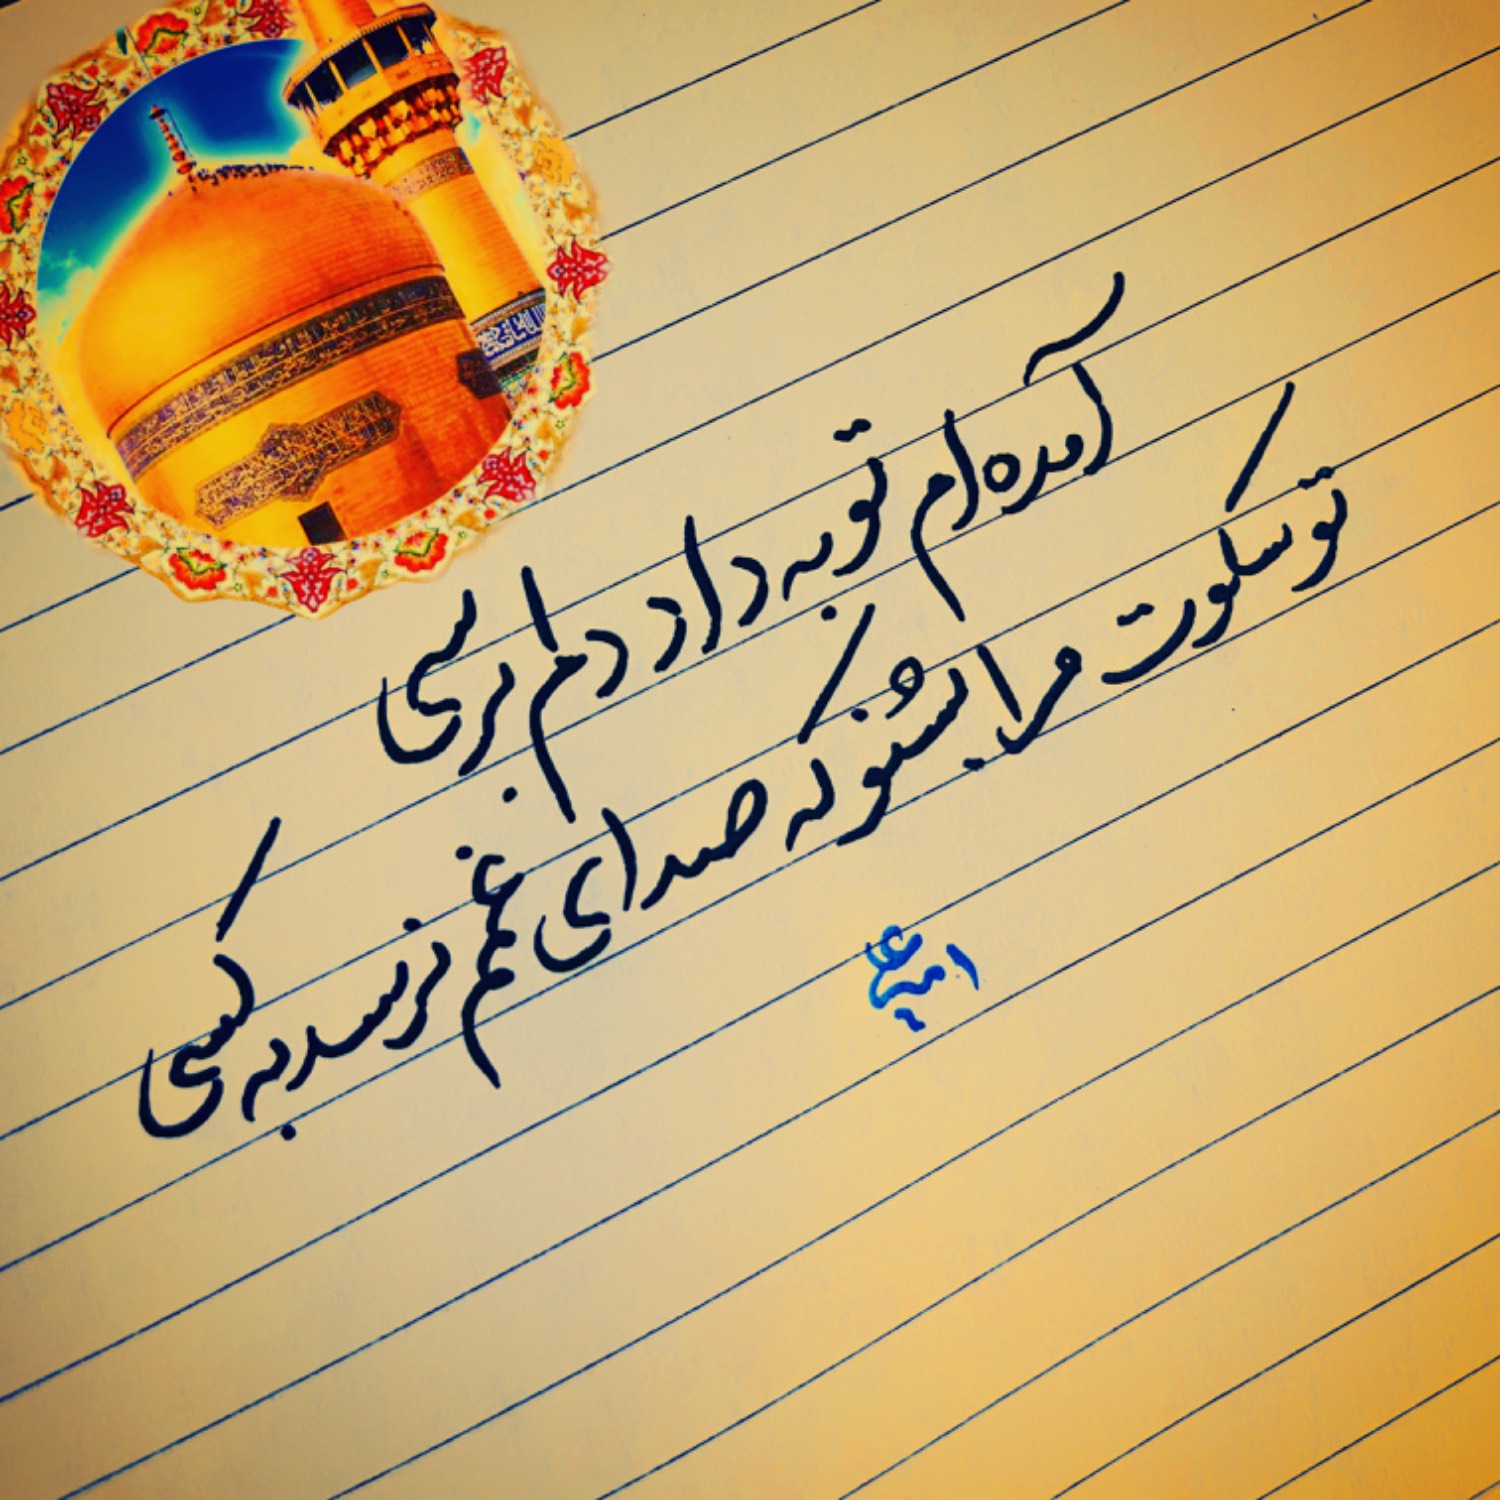 آمده ام تو به داد دلم برسی
تو سکوت مرا بشنو که صدای غمم نرسد به کسی
امیرعلی